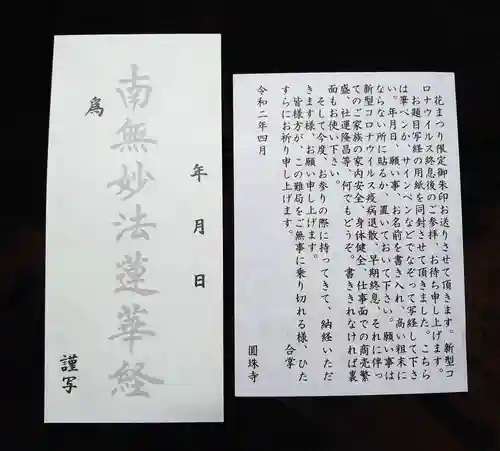 南無妙法蓮華経
為
年 月 日
謹写
花まつり限定御朱印お送りさせて頂きます。新型コ
ロナウイルス終息後のご参拝、お待ち申し上げます。
お題目写経の用紙を同封させて頂きました。こちら
は筆ペンか、サインペンなどでなぞって写経して下さ
い。年月日、願い事、お名前を書き入れ、高い粗末に
ならない所に貼るか、置いておいて下さい。願い事は
新型コロナウイルス疫病退散、早期終息、それに伴っ
てのご家族の家内安全、身体健全、仕事面での商売繁
盛、社運隆昌等、何でもどうぞ。書ききれなければ裏
面もお使い下さい。
そして今度、お参りの際に持ってきて、納経いただ
きます様、お願い申し上げます。
皆様方が、この難局をご無事に乗り切れる様、ひた
すらにお祈り申し上げます。
合掌
令和二年四月
圓珠寺